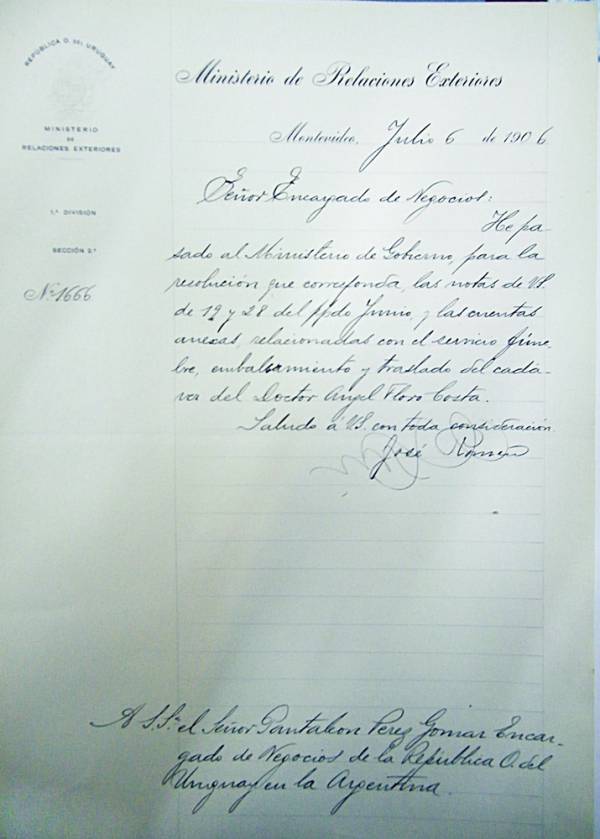 REPÚBLICA O. DEL URUGUAY
MINISTERIO
DE
RELACIONES EXTERIORES
1.ª DIVISIÓN
SECCIÓN 2.ª
Nº 1666
Ministerio de Relaciones Exteriores
Montevideo, Julio 6 de 1906
Señor Encargado de Negocios:
He pa-
sado al Ministerio de Gobierno, para la
resolución que corresponda, las notas de VS.
de 19 y 28 del ppdo Junio, y las cuentas
anexas, relacionadas con el servicio fúne-
bre, embalsamiento y traslado del cadá-
ver del Doctor Angel Floro Costa.
Saludo á VS. con toda consideración.
José Romeu
A S.Sª el Señor Pantaleon Perez Gomar Encar-
gado de Negocios de la República O. del
Uruguay en la Argentina.